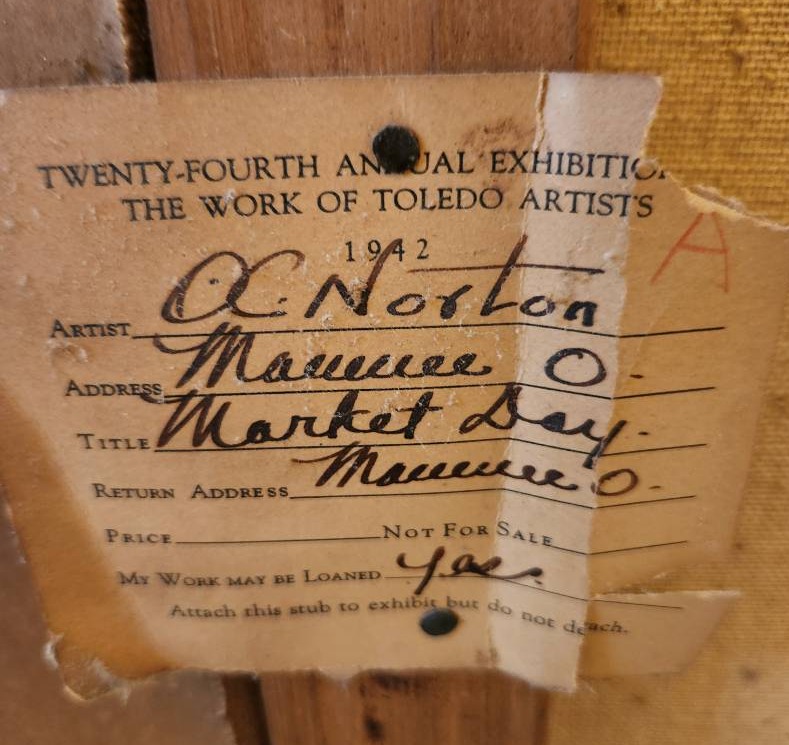 TWENTY-FOURTH ANNUAL EXHIBITION
THE WORK OF TOLEDO ARTISTS
1942
A
ARTIST O.C. Norton
ADDRESS Maumee O.
TITLE Market Day.
RETURN ADDRESS Maumee O.
PRICE NOT FOR SALE
MY WORK MAY BE LOANED yes.
Attach this stub to exhibit but do not detach.